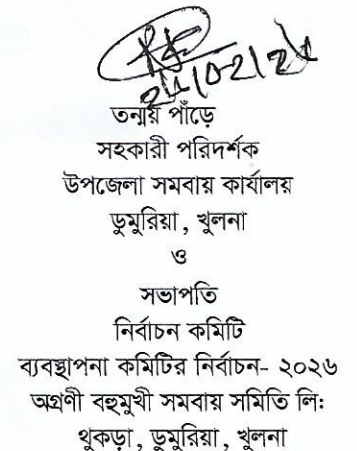 তন্ময় পাঁড়ে
সহকারী পরিদর্শক
উপজেলা সমবায় কার্যালয়
ডুমুরিয়া, খুলনা
ও
সভাপতি
নির্বাচন কমিটি
ব্যবস্থাপনা কমিটির নির্বাচন- ২০২৬
অগ্রণী বহুমুখী সমবায় সমিতি লি:
থুকড়া, ডুমুরিয়া, খুলনা